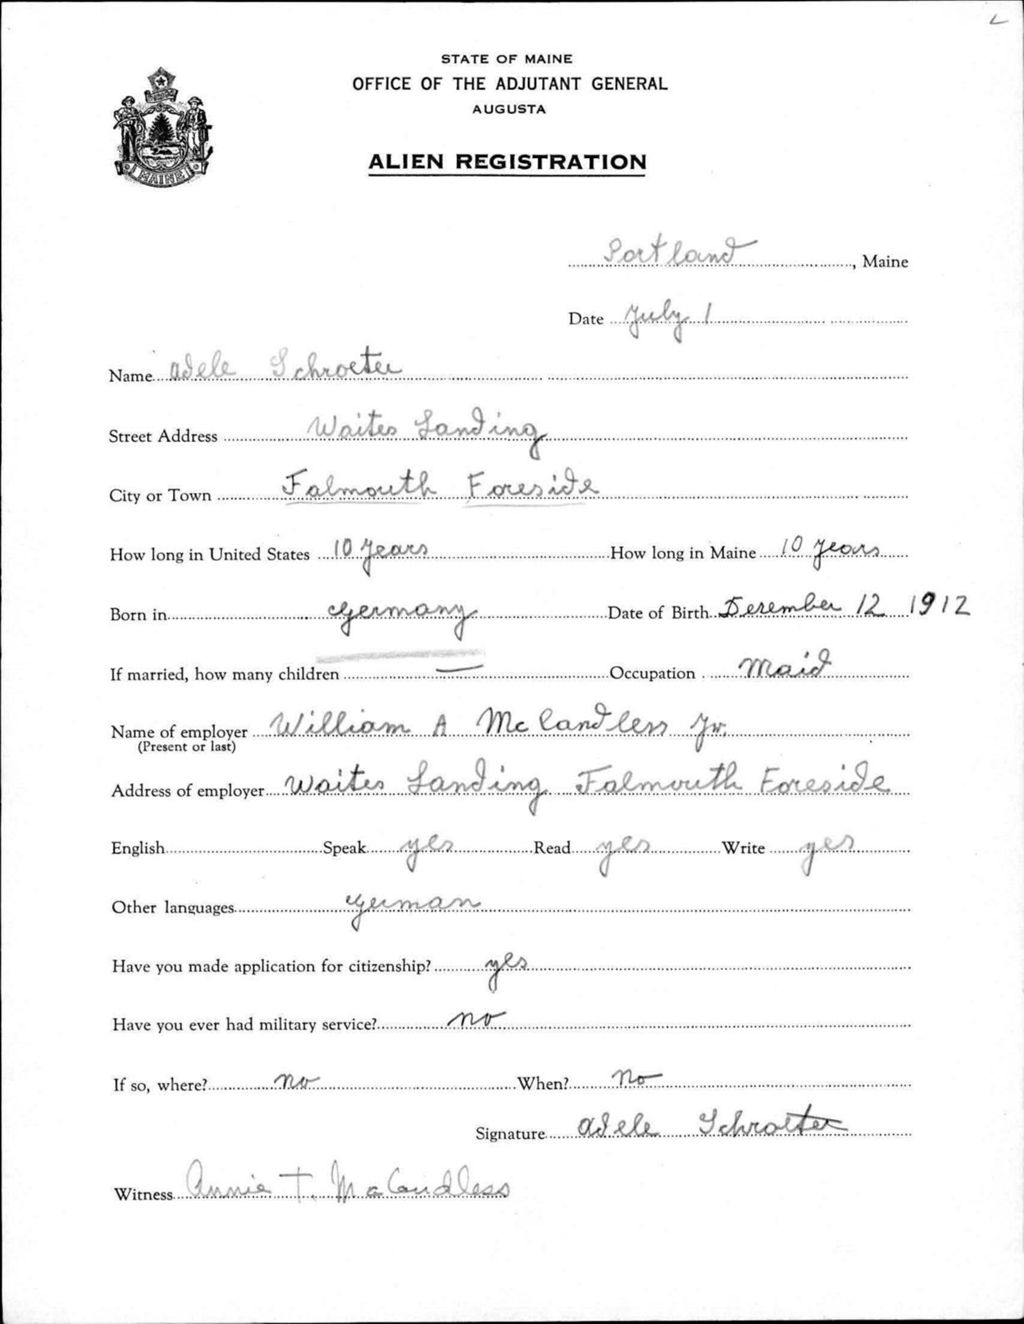 L
STATE OF MAINE
OFFICE OF THE ADJUTANT GENERAL
AUGUSTA
MAINE
ALIEN REGISTRATION
Portland, Maine
Date July 1
Name Adele Schroeter
Street Address Waites Landing
City or Town Falmouth Foreside
How long in United States 10 years How long in Maine 10 years
Born in Germany Date of Birth Desember 12 1912
If married, how many children — Occupation Maid
Name of employer William A McCandless Jr.
(Present or last)
Address of employer Waites Landing Falmouth Foreside
English Speak yes Read yes Write yes
Other languages German
Have you made application for citizenship? yes
Have you ever had military service? no
If so, where? no When? No
Signature Adele Schroeter
Witness Annie T. McCandless